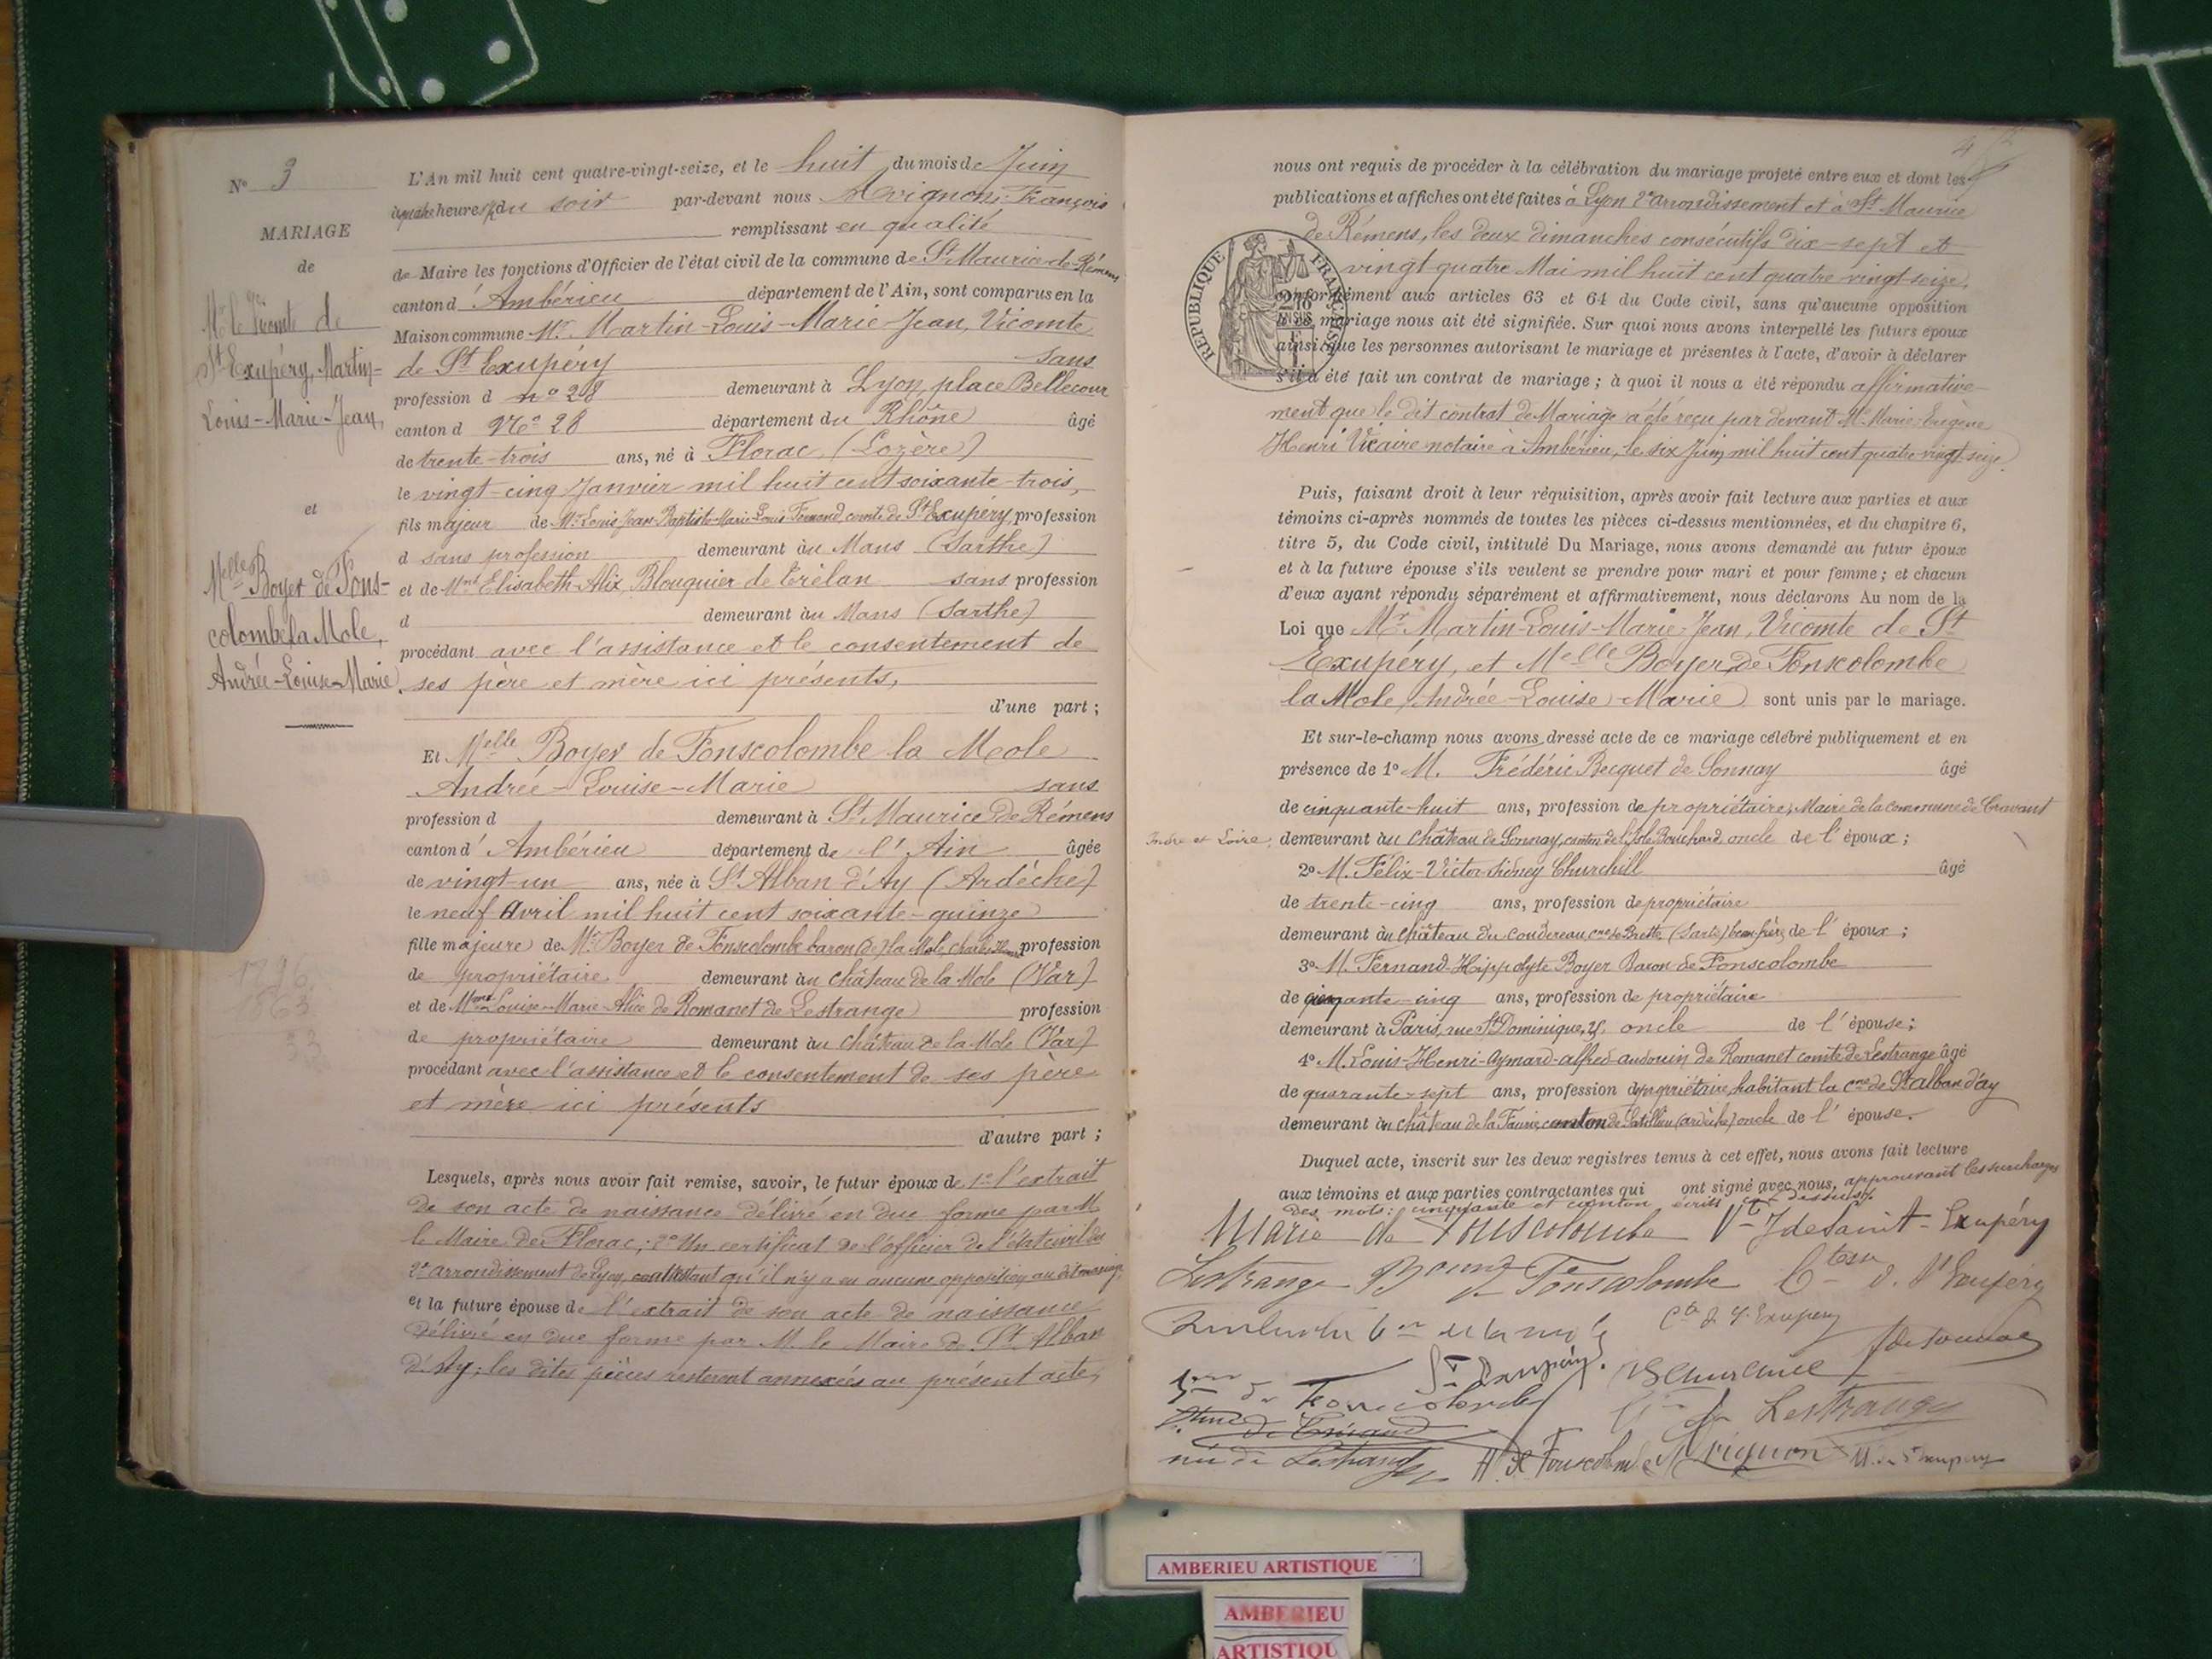 N° 3
MARIAGE
de
Mr le Vicomte de
St Exupéry, Martin-
Louis-Marie-Jean,
et
Melle Boyer de Fons-
colombe la Mole,
Andrée-Louise-Marie
L'An mil huit cent quatre-vingt-seize, et le huit du mois de Juin
à quatre heures du soir par-devant nous Avignon François
remplissant en qualité
de Maire les fonctions d'Officier de l'état civil de la commune de St Maurice-de-Rémens
canton d'Ambérieu département de l'Ain, sont comparus en la
Maison commune Mr Martin-Louis-Marie-Jean, Vicomte
de St Exupéry sans
profession d n° 28 demeurant à Lyon, place Bellecour
canton d N° 28 département du Rhône âgé
de trente-trois ans, né à Florac (Lozère)
le vingt-cinq Janvier mil huit cent soixante-trois,
fils majeur de Mr Louis Jean-Baptiste-Marie-Louis Fernand, comte de St Exupéry, profession
d sans profession demeurant au Mans (Sarthe)
et de Mme Elisabeth-Alix Blouquier de Trélan sans profession
d demeurant au Mans (Sarthe)
procédant avec l'assistance et le consentement de
ses père et mère ici présents,
d'une part ;
Et Melle Boyer de Fonscolombe la Mole
Andrée-Louise-Marie sans
profession d demeurant à St Maurice de Rémens
canton d'Ambérieu département de l'Ain âgée
de vingt-un ans, née à St Alban d'Ay (Ardèche)
le neuf Avril mil huit cent soixante-quinze
fille majeure de Mr Boyer de Fonscolombe baron (de) la Mole, Charles profession
de propriétaire demeurant au château de la Mole (Var)
et de Mme Louise-Marie-Alice de Romanet de Lestrange profession
de propriétaire demeurant au château de la Mole (Var)
procédant avec l'assistance et le consentement de ses père
et mère ici présents
d'autre part ;
Lesquels, après nous avoir fait remise, savoir, le futur époux de 1° l'extrait
de son acte de naissance délivré en due forme par M.
le Maire de Florac ; 2° Un certificat de l'officier de l'état civil du
2e arrondissement de Lyon, qu'il n'y a eu aucune opposition au dit mariage
et la future épouse de l'extrait de son acte de naissance
délivré en due forme par M. le Maire de St Alban
d'Ay ; les dites pièces resteront annexées au présent acte,
1896
1863
33
4
nous ont requis de procéder à la célébration du mariage projeté entre eux et dont les
publications et affiches ont été faites à Lyon 2e arrondissement et à St Maurice
de Rémens, les deux dimanches consécutifs dix-sept et
vingt quatre Mai mil huit cent quatre vingt seize,
conformément aux articles 63 et 64 du Code civil, sans qu'aucune opposition
mariage nous ait été signifiée. Sur quoi nous avons interpellé les futurs époux
ainsi que les personnes autorisant le mariage et présentes à l'acte, d'avoir à déclarer
s'il a été fait un contrat de mariage ; à quoi il nous a été répondu affirmative-
ment que le dit contrat de Mariage a été reçu par devant Me Marie-Eugène
Henri Vicaire notaire à Ambérieu, le six Juin mil huit cent quatre vingt seize.
RÉPUBLIQUE FRANÇAISE
Puis, faisant droit à leur réquisition, après avoir fait lecture aux parties et aux
témoins ci-après nommés de toutes les pièces ci-dessus mentionnées, et du chapitre 6,
titre 5, du Code civil, intitulé Du Mariage, nous avons demandé au futur époux
et à la future épouse s'ils veulent se prendre pour mari et pour femme ; et chacun
d'eux ayant répondu séparément et affirmativement, nous déclarons Au nom de la
Loi que Mr Martin-Louis-Marie-Jean, Vicomte de St
Exupéry, et Melle Boyer de Fonscolombe
la Mole, Andrée-Louise-Marie sont unis par le mariage.
Et sur-le-champ nous avons dressé acte de ce mariage célébré publiquement et en
présence de 1° M. Frédéric Becquet de Sonnay âgé
de cinquante-huit ans, profession de propriétaire, Maire de la commune de Cravant
Indre et Loire, demeurant au château de Sonnay, canton de l'Isle Bouchard oncle de l'époux ;
2° M. Félix-Victor-Sidney Churchill âgé
de trente-cinq ans, profession de propriétaire
demeurant au château du Coudereau, cne de Brette (Sarthe) beau-frère de l'époux ;
3° M. Fernand-Hippolyte Boyer Baron de Fonscolombe
de cinquante-cinq ans, profession de propriétaire
demeurant à Paris, rue St Dominique, 25, oncle de l'épouse ;
4° M. Louis-Henri-Aymard-alfred-audouin de Romanet comte de Lestrange âgé
de quarante-sept ans, profession de propriétaire, habitant la cne de St alban d'ay
demeurant au château de la Faurie, canton de Satillieu (ardèche) oncle de l'épouse.
Duquel acte, inscrit sur les deux registres tenus à cet effet, nous avons fait lecture
aux témoins et aux parties contractantes qui ont signé avec nous, approuvant les surcharges
des mots : cinquante et canton écrits ci-dessus
Marie de Fonscolombe Vte J de Saint-Exupéry
Lestrange Fonscolombe Ctesse d. St Exupéry
Cte de St Exupery
St Exupéry. Churchill f de Sonnay
de Fonscolombe
de Lestrange
née de Lestrange H. de Fonscolombe Avignon
AMBERIEU ARTISTIQUE
AMBERIEU
ARTISTIQU